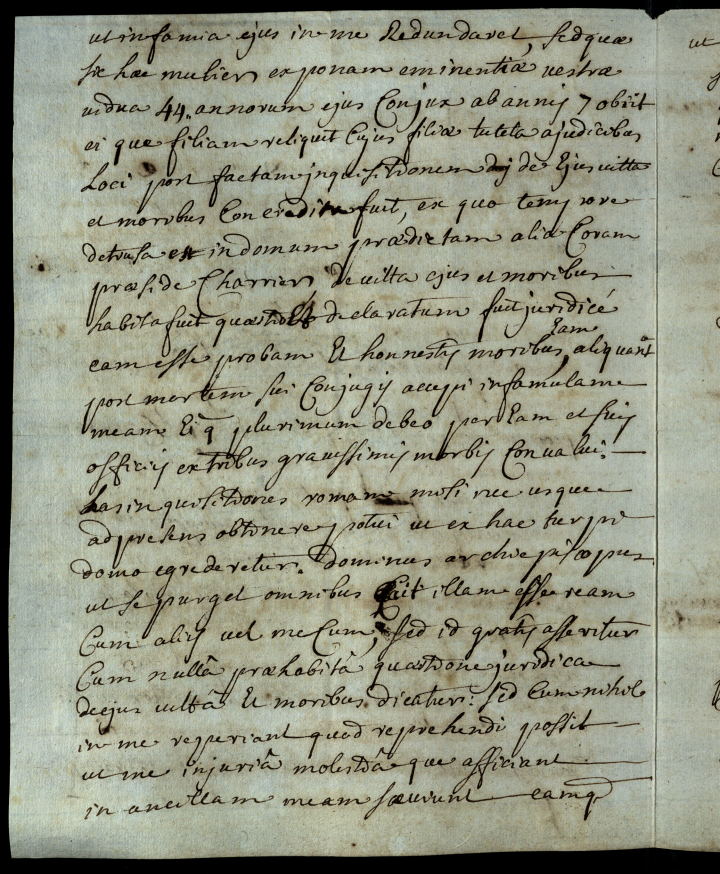 ut infamia ejus in me Redundaret, sed quæ
sit hæc mulier exponam eminentiæ vestræ
vidua 44. annorum ejus Conjux ab annis 7 obiit
ei que filiam reliquit Cujus filiæ tutela a judicibus
Loci post factam inquisitionem de Ejus vitta
et moribus Concredita fuit, ex quo tempore
detrusa est in domum prædictam aliæ Coram
præside Charrier, de vitta ejus et moribus
habita fuit quæstio Et declaratum fuit juridicé
eam esse probam Et honnestis moribus, Eam aliquantò
post mortem sui Conjugis accepi in famulam
meam Ei q plurimum debeo per Eam et suis
officiis ex tribus gravissimis morbis Convalui.
has inquisitiones romam misi nec usque
ad presens obtinere potui ut ex hac turpi
domo egrederetur. Dominus archiepiscopus
ut se purget omnibus ait illam esse ream
Cum aliis vel mecum, sed id gratis asseritur
Cum nullâ præhabitâ quæstione juridica
de ejus vittâ Et moribus dicatur: sed Cum nihil
in me reperiant quod reprehendi possit
ut me injuriâ molestiâ que afficiant
in ancillam meam sæviunt eamq
ut